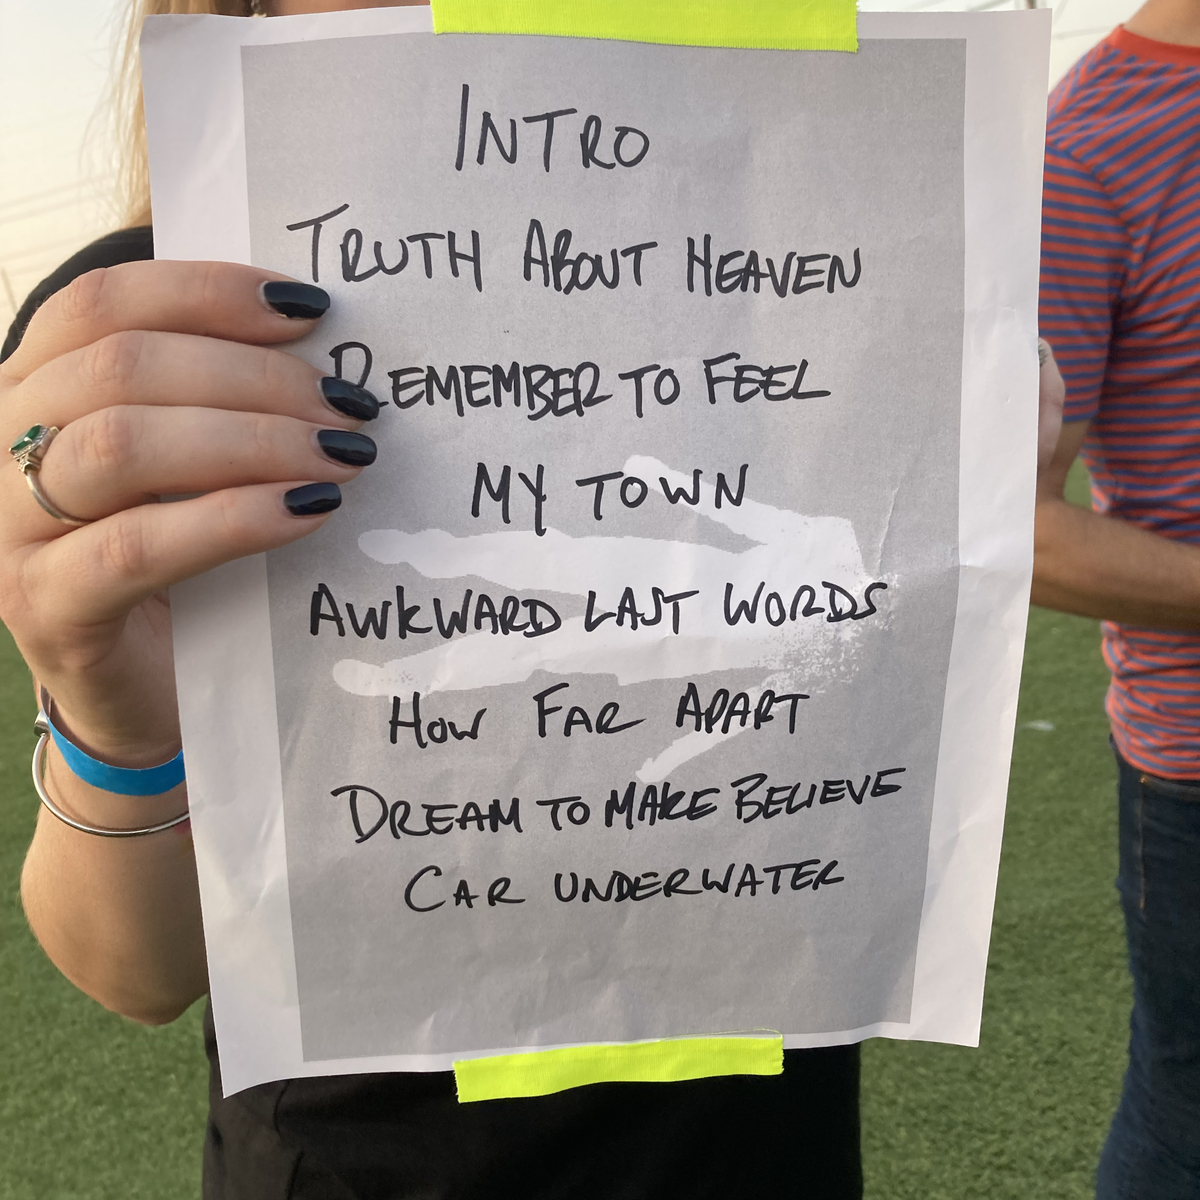 INTRO
TRUTH ABOUT HEAVEN
REMEMBER TO FEEL
MY TOWN
AWKWARD LAST WORDS
HOW FAR APART
DREAM TO MAKE BELIEVE
CAR UNDERWATER